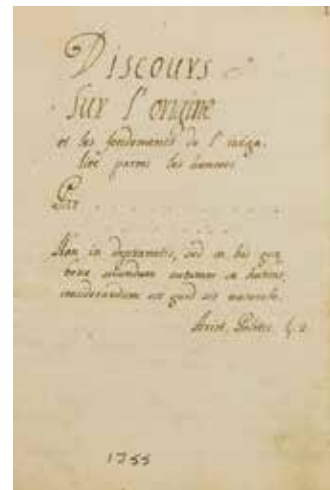 Discours
sur l'origine
et les fondements de l'inéga.
lité parmi les hommes
Par . . . . . . . . . .
Non in depravatis, sed in his quæ
bene secundum naturam se habent,
considerandum est quid sit naturale.
Arist. Politic. L. 2.
1755